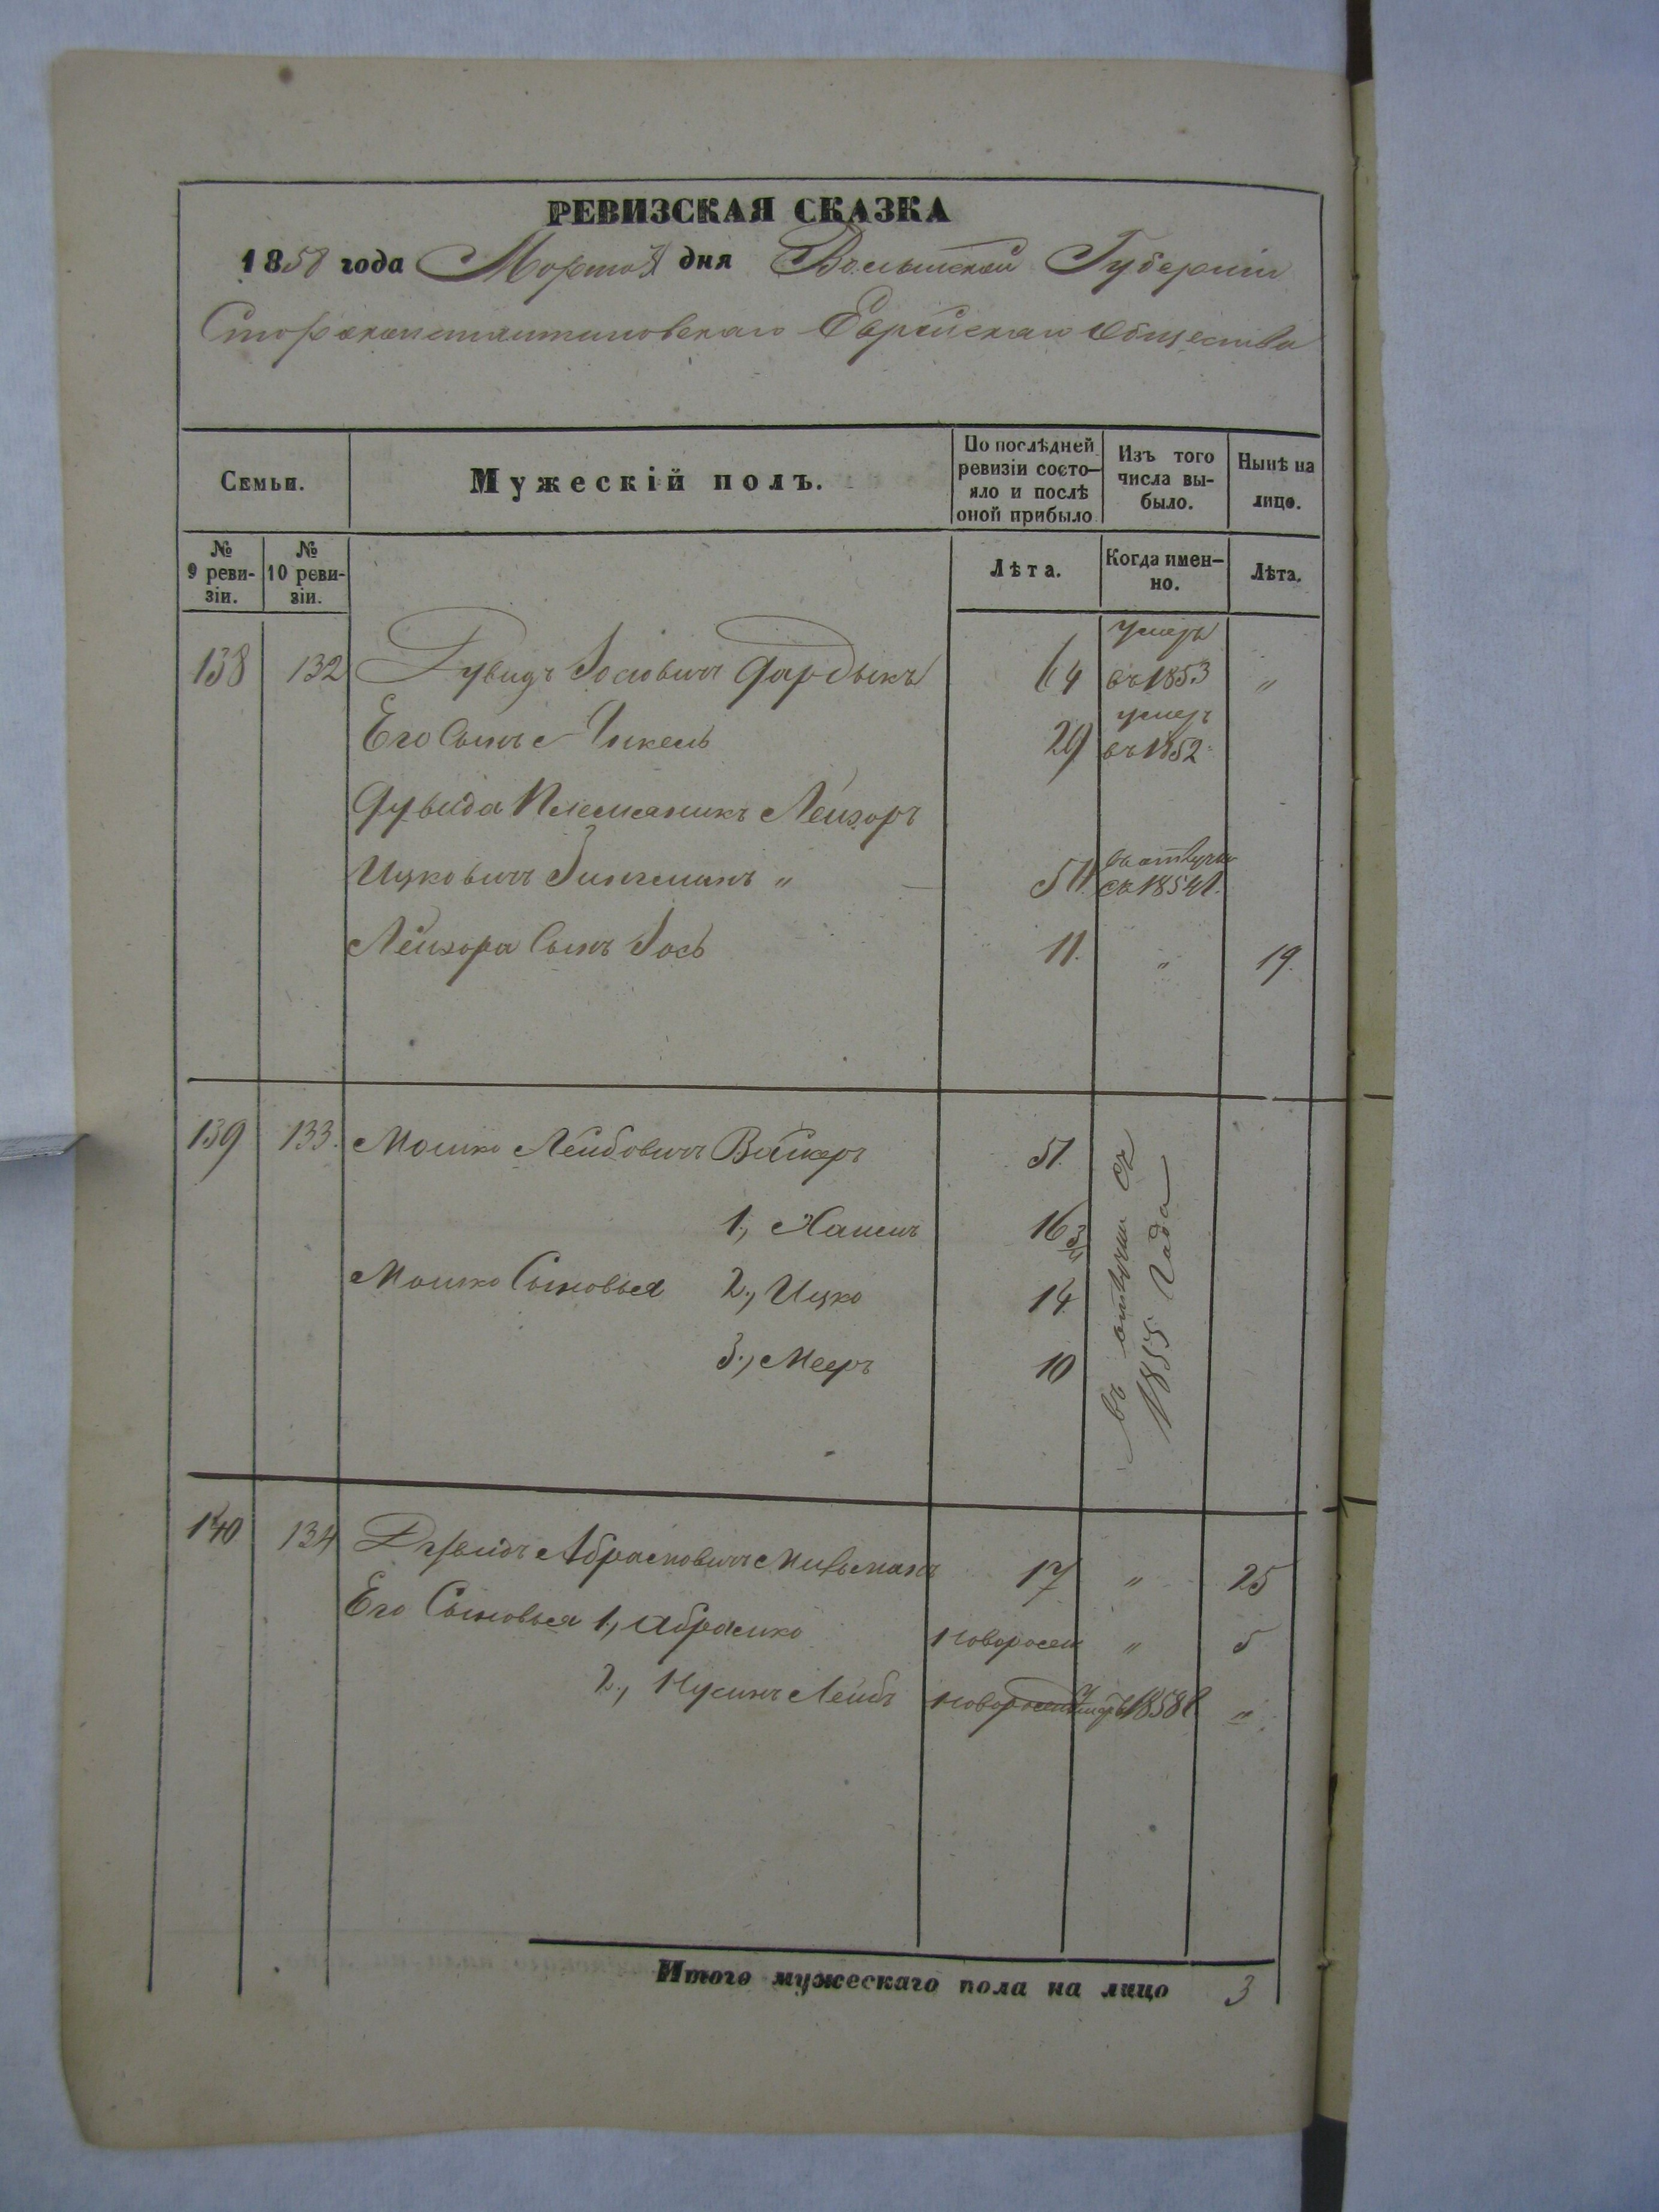 РЕВИЗСКАЯ СКАЗКА
1858 года Марта дня Волынской Губерніи
Староконстантиновскаго Еврейскаго Общества
Семьи.
Мужескій полъ.
По послѣдней ревизіи состо-
яло и послѣ
оной прибыло
Изъ того
числа вы-
было.
Нынѣ на
лицо.
№
9 реви-
зіи.
№
10 реви-
зіи.
Лѣта.
Когда имен-
но.
Лѣта.
138 132 Дувидъ Іосіовичъ 64 умеръ въ 1853 "
Его Сынъ 29 умеръ въ 1852
Дувида Племяникъ Лейзоръ
Ицковичъ "
въ отлучки
съ 1854
Лейзора Сынъ Іось 11. " 19.
139 133. Мошко Лейбовичъ 51.
въ отлучки съ
1855 Года
1., Хаимъ 16 3/4
Мошко Сыновья 2., Ицко 14
3., Мееръ 10
140 134 Дувидъ Абрамовичъ 17 " 25
Его Сыновья 1., Абрамко новорожен " 5
2., Нусинъ Лейбъ умеръ 1858 "
Итого мужескаго пола на лицо 3